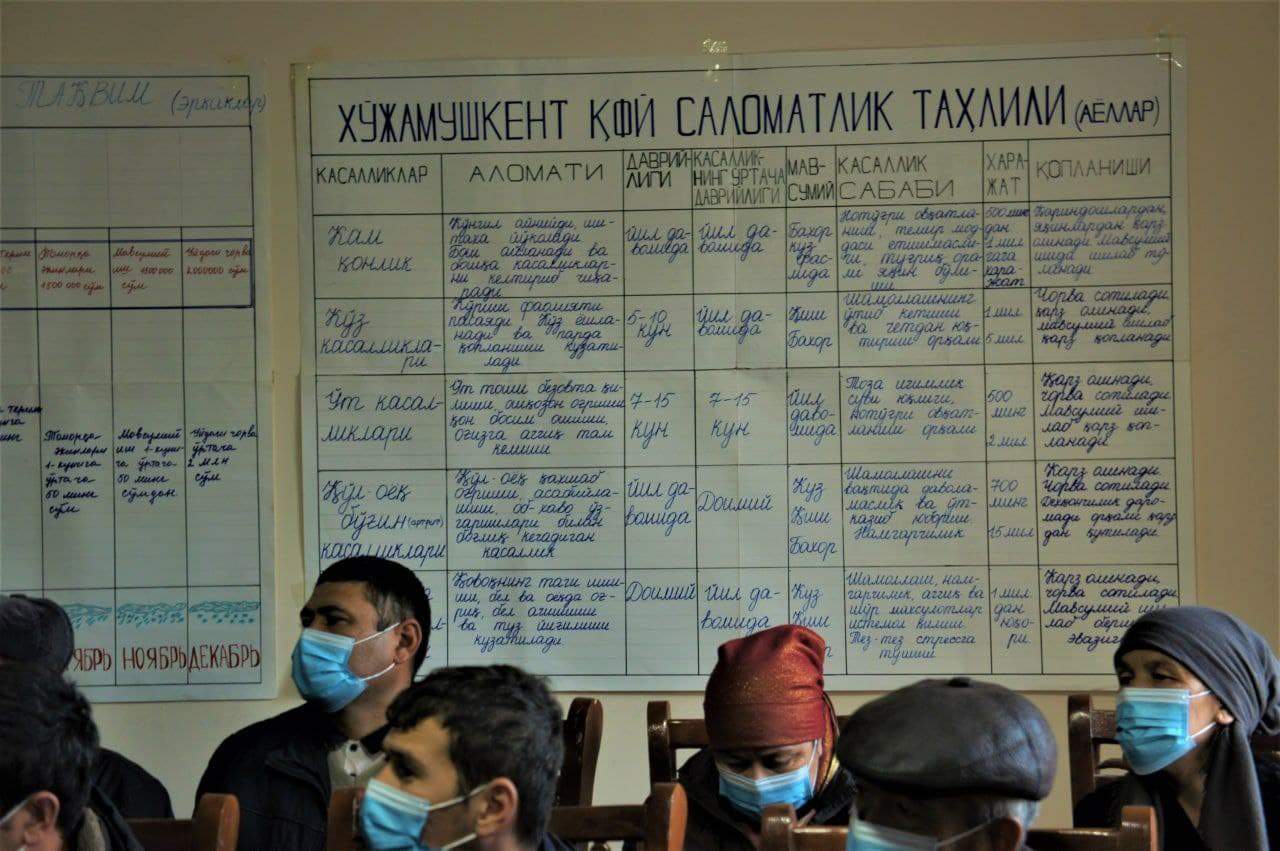 ТАҚВИМ (эркаклар)
Томорқа
экинлари
1500 000 сўм
Мавсумий
иш 400000
сўм
Уйдаги чорва
2.000000 сўм
Томорқа
экинлари
1-кунига
ўртача
50 минг
сўм
Мавсумий
иш 1-куни
га ўртача
50 минг
сўмдан
Уйдаги чорва
ўртача
2 млн
сўм
ЯБРЬ НОЯБРЬ ДЕКАБРЬ
ХЎЖАМУШКЕНТ ҚФЙ САЛОМАТЛИК ТАҲЛИЛИ (АЁЛЛАР)
КАСАЛЛИКЛАР
АЛОМАТИ
ДАВРИЙ-
ЛИГИ
КАСАЛЛИК-
НИНГ УРТАЧА
ДАВРИЙЛИГИ
МАВ-
СУМИЙ
КАСАЛЛИК
САБАБИ
ХАРА-
ЖАТ
ҚОПЛАНИШИ
Кам
қонлик
Кўнгил айнийди, иш-
таха йўқолади
бош айланади ва
бошқа касалликлар-
ни келтириб чиқа-
ради
Йил да-
вомида
йил да-
вомида
Бахор
куз
фас-
лида
Нотўғри овқатла-
ниш, темир мод-
даси етишмасли-
ги, туғриқ ора-
си яқин бўли-
ши
500 минг
дан
1 мил
гача
хара-
жат
Қариндошлардан,
яқинлардан қарз
олинади Мавсумий
ишда ишлаб тў-
ланади
Кўз
касалликла-
ри
Кўриш фаолияти
пасаяди. Кўз ёшла-
нади ва парда
қопланиши кузати-
лади
5-10
кун
йил да-
вомида
Қиш
Бахор
Шамоллашнинг
ўтиб кетиши
ва четдан юқ-
тириш орқали
1 мил
5 мил
Чорва сотилади,
қарз олинади,
мавсумий ишлаб
қарз қопланади
Ўт касал-
ликлари
Ўт тоши безовта қи-
лиши, ошқозон оғриши
қон босим ошиши,
оғизга аччиқ там
келиши
7-15
кун
7-15
кун
Йил
даво-
мида
Тоза ичимлик
суви йўқлиги,
Нотўғри овқат-
ланиш орқали
500
минг
2 мил
Қарз олинади,
чорва сотилади.
Мавсумий иш-
лаб қарз қоп-
ланади
Қўл-оёқ
бўғин (артрит)
касалликлари
Қўл-оёқ қақшаб
оғриши, асабийла-
шиш, об-хаво ўз-
гаришлари билан
боғлиқ кечадиган
касаллик
йил да-
вомида
Доимий
Куз
Қиш
Бахор
Шамоллашни
вақтида давола-
маслик ва ўт-
казиб юбориш.
Намгарчилик
700
минг
15 мил
Қарз олинади
Чорва сотилади
Дехқончилик даро-
мади орқали қарз
дан қутилади.
Қовоқнинг таги шиши-
ши, бел ва оёқда оғ-
риқ, бел ачишиши
ва туз йиғилиши
кузатилади.
Доимий
йил да-
вомида
Куз
Қиш
Шамоллаш, нам-
гарчилик, аччиқ ва
шўр махсулотлар
истемол қилиш.
Тез-тез стрессга
тушиш
1 мил.
дан
юқо-
ри.
Қарз олинади,
чорва сотилади
Мавсумий иш-
лаб бериш
эвазига